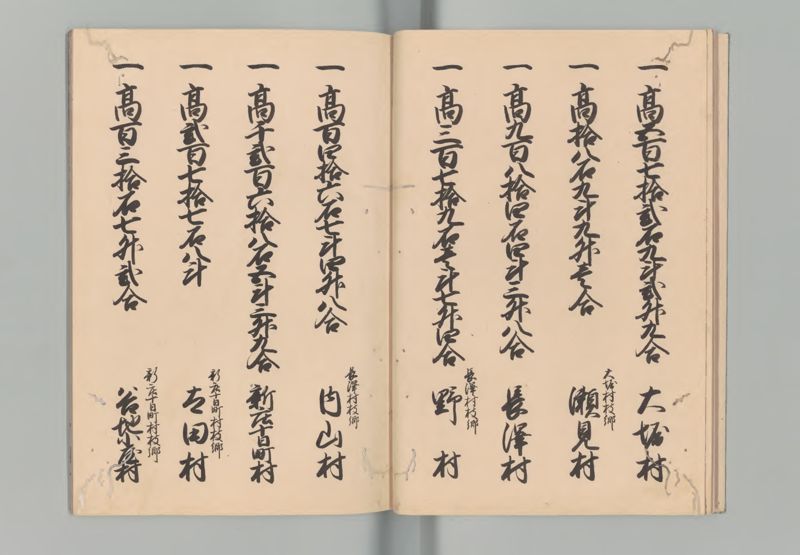 一高六百七拾弐石九斗弐升九合 大堀村
大堀村枝郷
一高拾八石九斗九升壱合 瀬見村
一高九百八拾四石四斗三升八合 長澤村
長澤村枝郷
一高三百七拾九石壱斗七升四合 野村
長澤村枝郷
一高百四拾六石七斗四升八合 内山村
一高千弐百六拾八石五斗三升九合 新庄十日町村
新庄十日町村枝郷
一高弐百七拾七石八斗 太田村
新庄十日町村枝郷
一高百三拾石七升弐合 谷地小屋村